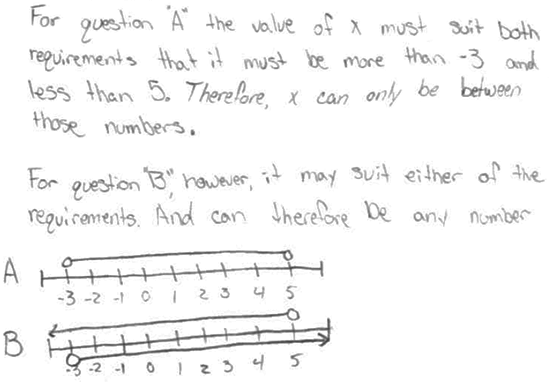 For question "A" the value of x must suit both
requirements that it must be more than -3 and
less than 5. Therefore, x can only be between
those numbers.
For question "B", however, it may suit either of the
requirements. And can therefore be any number
A
-3 -2 -1 0 1 2 3 4 5
B
-3 -2 -1 0 1 2 3 4 5